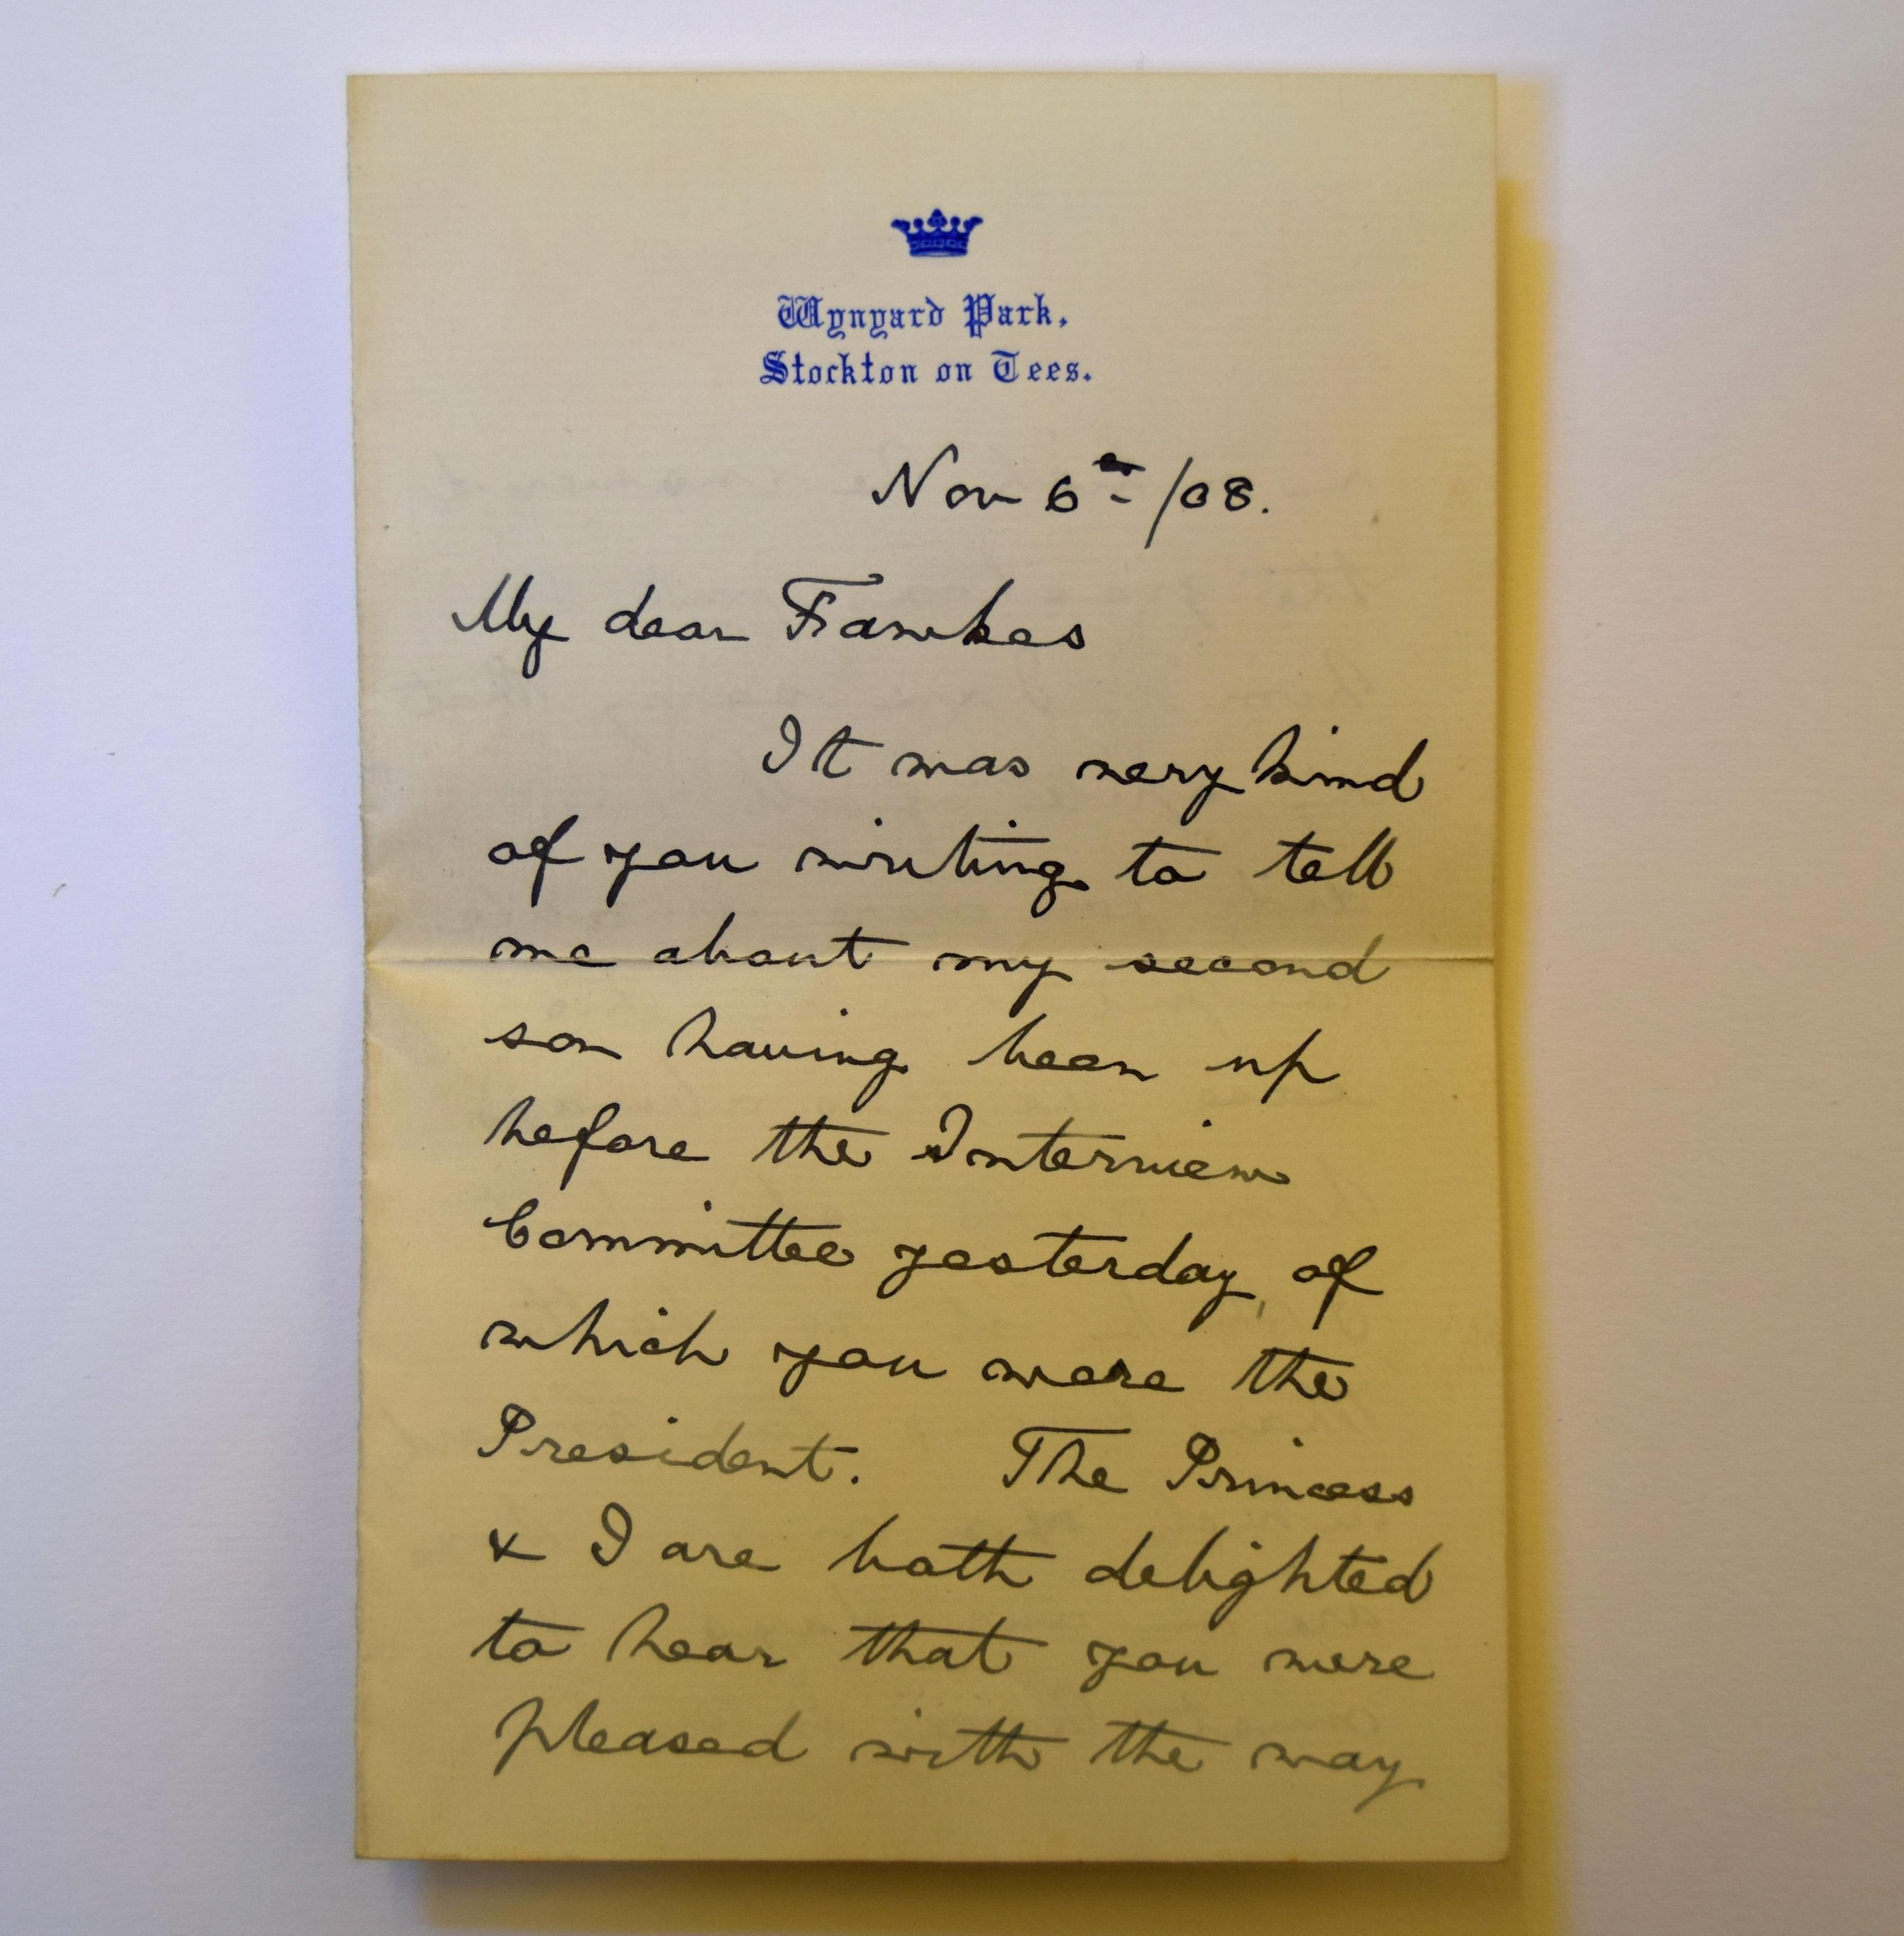 Wynyard Park,
Stockton on Tees.
Nov 6th /08.
My dear Fawkes
It was very kind
of you writing to tell
me about my second
son having been up
before the Interview
Committee yesterday, of
which you were the
President. The Princess
& I are both delighted
to hear that you were
pleased with the way